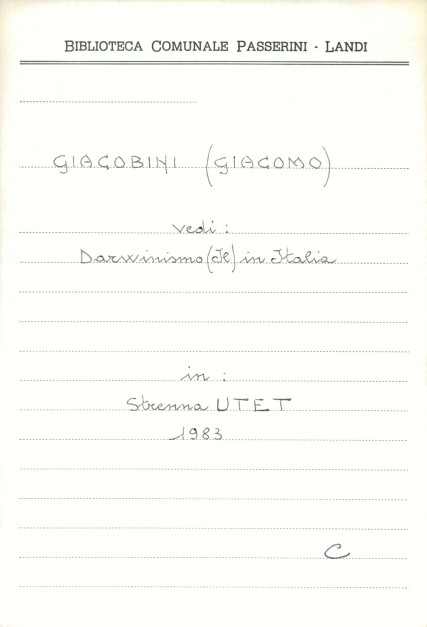 BIBLIOTECA COMUNALE PASSERINI - LANDI
GIACOBINI (GIACOMO)
vedi :
Darwinismo (Il) in Italia
in :
Strenna UTET
1983
C